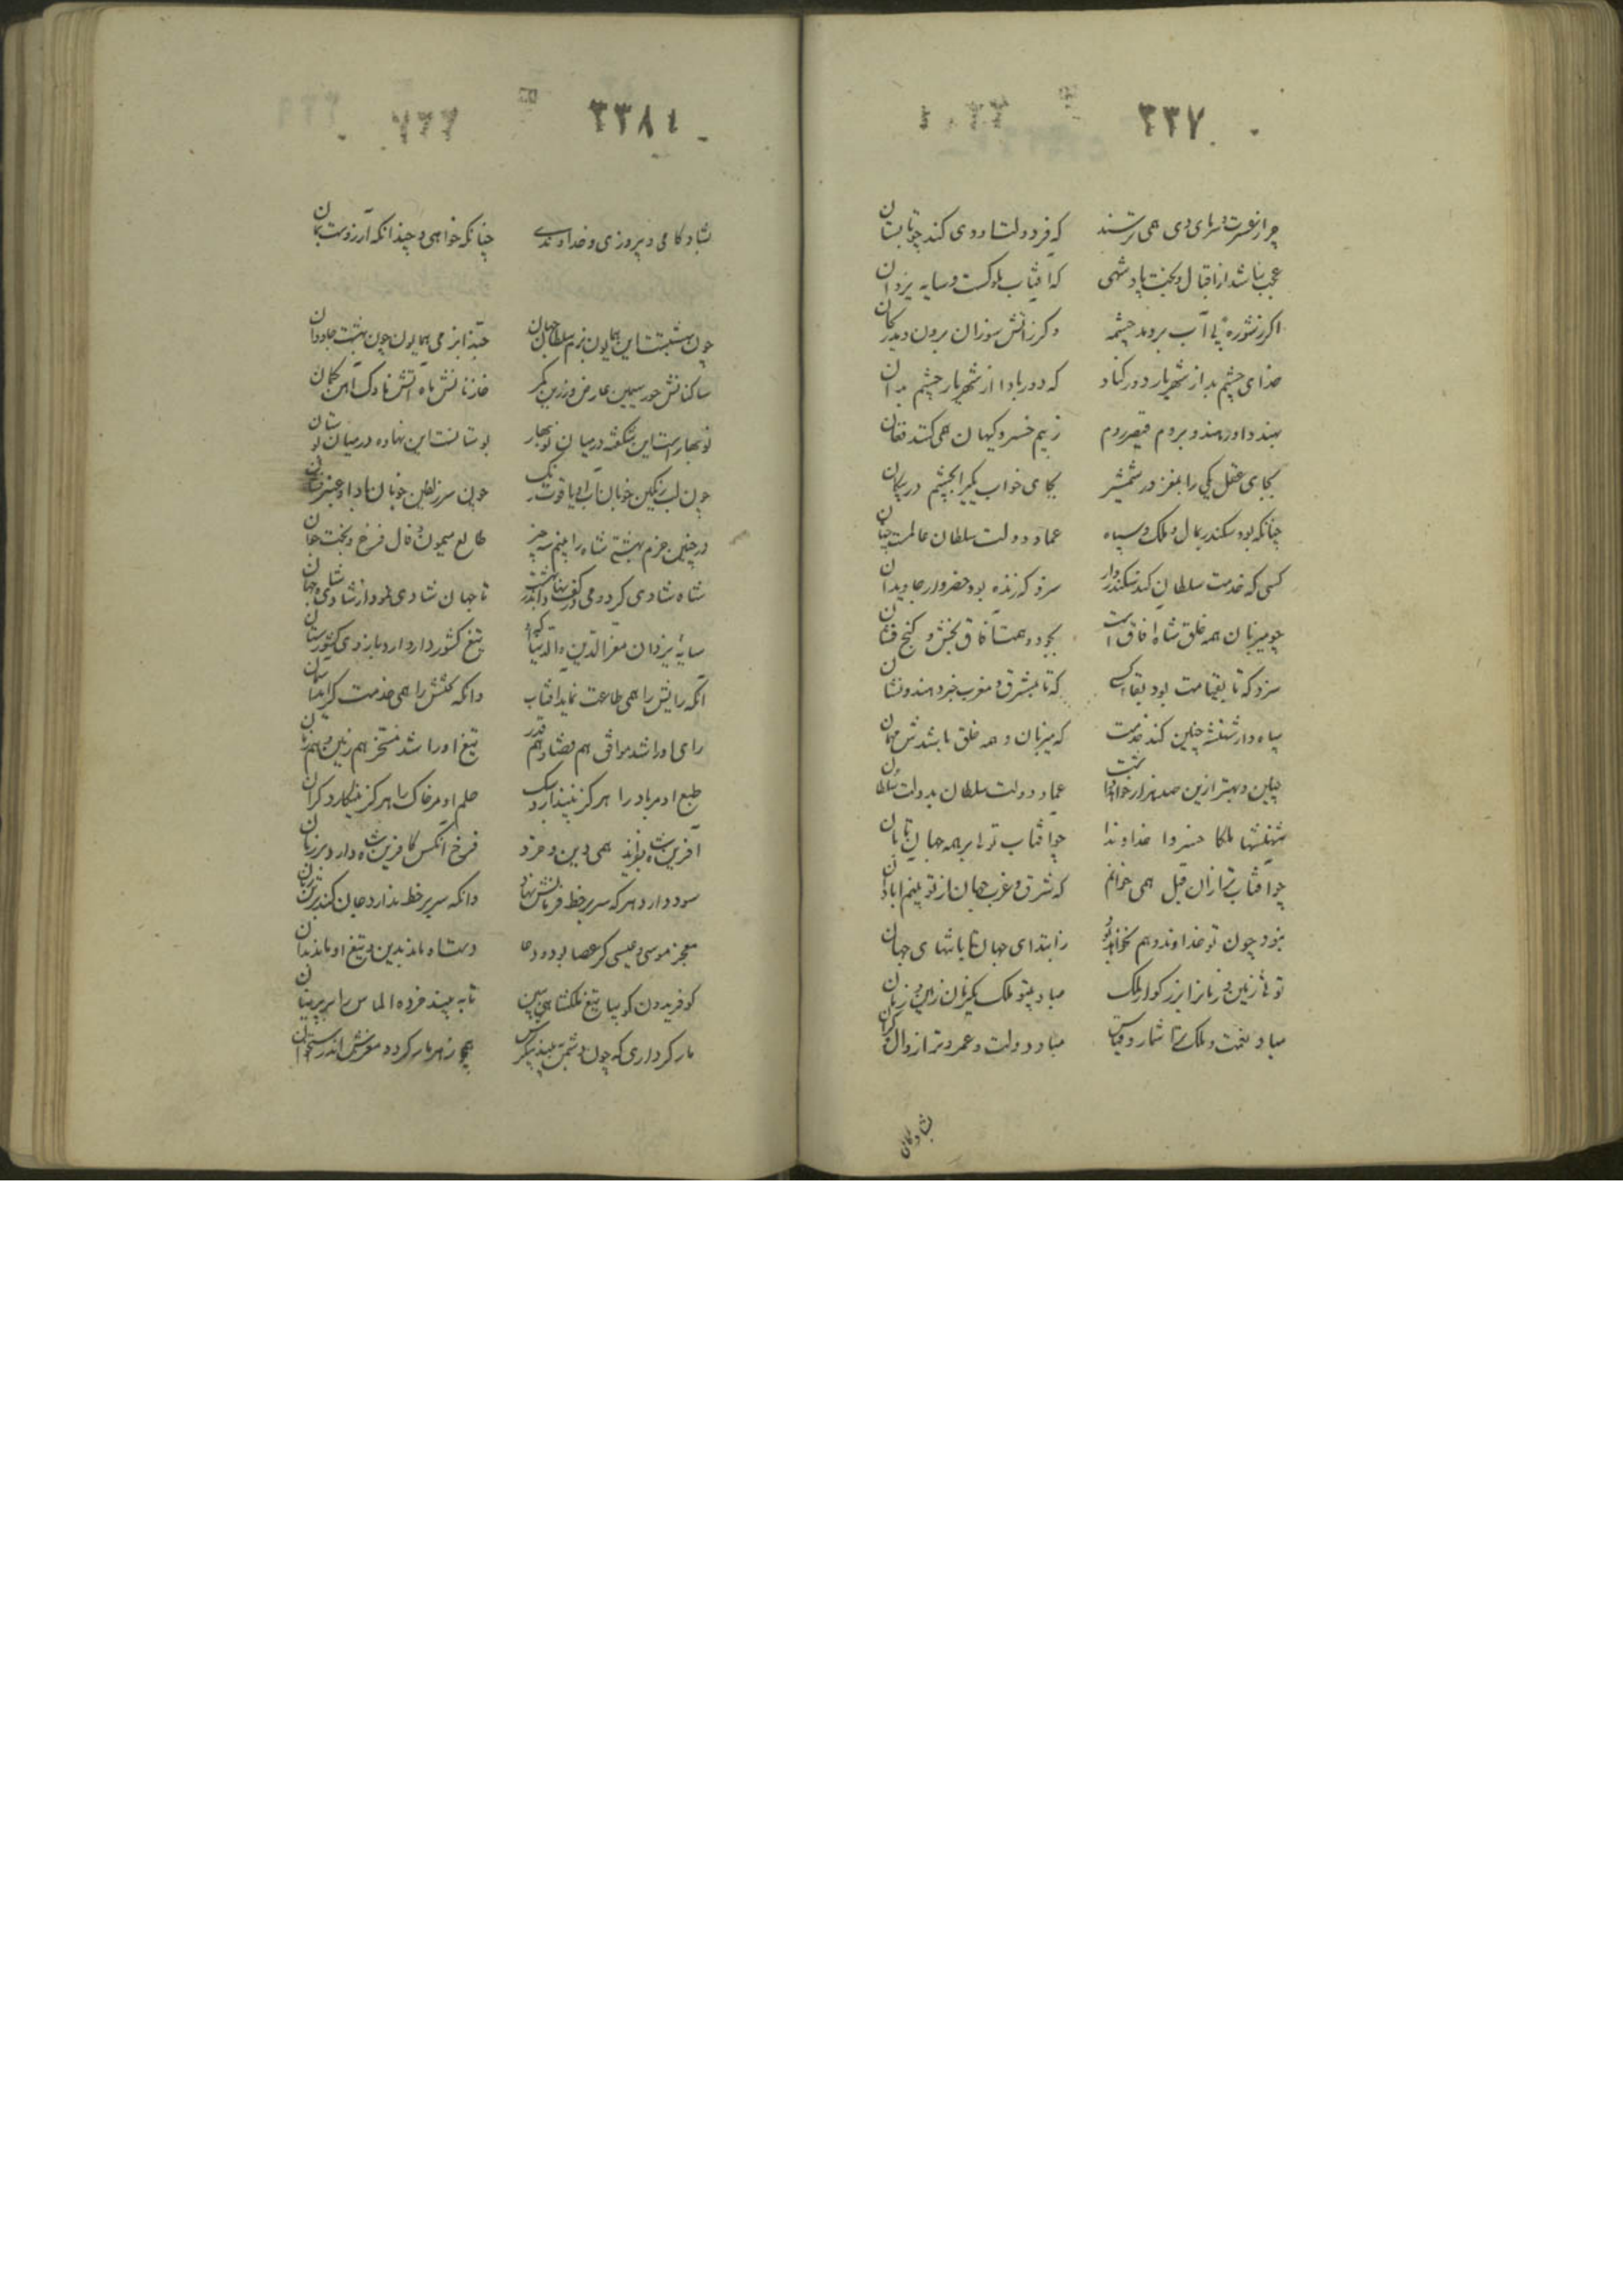 ۲۳۷
چرا ز عسرت و سرمای دی همی ترسند که فر دولت او دی کند چو تابستان
عجب نباشد از اقبال و بخت پادشهی که آفتاب ملوکست و سایه یزدان
اکر ز شوره بی آب بردمد چشمه وکر ز آتش سوزان برون دمد
خدای چشم بد از شهریار دور کناد که دور بادا از شهریار چشم بدان
بهند داور هند و بروم قیصر روم ز بیم خسرو کیهان همی کنند فغان
بجای عقل یکی را بمغز در شمشیر بجای خواب یکی را بچشم در پیکان
چنانکه بود سکندر بمال و ملک و سپاه عماد دولت سلطان عالمست چنان
کسی که خدمت سلطان کند سکندروار سزد که زنده بود خضروار جاویدان
چو میزبان همه خلق شاه آفاق است بجود و همت آفاق بخش و کنج فشان
سزد که تا بقیامت بود بقای کسی که تا بمشرق و مغرب خبر دهند و نشان
سپاه دار شهنشه چنین کند خدمت که میزبان و همه خلق باشدش مهمان
چنین و بهتر ازین صد هزار خواهد عماد دولت سلطان بدولت سلطان
شهنشها ملکا خسروا خداوندا چو آفتاب تو ای بر همه جهان تابان
چو آفتاب ترا زان قبل همی خوانم که شرق و غرب جهان از تو بینم آبادان
نبود چون تو خداوند و هم نخواهد بود ز ابتدای جهان تا بانتهای جهان
توئی زمین و زمانرا بزرکوار ملک مباد بیتو ملک یکزمان زمین و زمان
مباد نعمت و ملک ترا شمار و قیاس مباد دولت و عمر ترا زوال و کران
بشادکامی
۲۳۸
بشادکامی و پیروزی و خداوندی چنانکه خواهی و چندانکه آرزوست بمان
چون بهشتست این همایون بزم سلطان جهان حبذا بزمی همایون چون بهشت جاودان
ساکنانش حور سیمین عارض و زرین کمر خازنانش ماه آتش ناوک آهن کمان
نوبهارست این شکفته در میان نوبهار بوستانست این نهاده در میان بوستان
چون لب رنکین خوبان آب او یاقوت رنک چون سر زلفین خوبان باد او عنبرفشان
در چنین خرم بهشتی شاه را بینم سه چیز طالع میمون و فال فرخ و بخت جوان
شاه شادی کرد و می در کف تا جهان شادی نمود از شادی شاه جهان
سایه یزدان معزالدین والدنیا که او تیغ کشوردار دارد بازوی کشورستان
آنکه رایش را همی طاعت نماید آفتاب وانکه کلکش را همی خدمت کند
رای او را شد موافق هم قضا و هم قدر تیغ او را شد مسخر هم زمین و هم زمان
طبع او مر باد را هرکز نپندارد سبک حلم او مر خاک را هرکز نینکارد کران
آفرین شاه خواند همی دین و خرد فرخ آنکس کافرین شاه دارد بر زبان
سود دارد هرکه سر بر خط فرمانش نهاد وانکه سر بر خط ندارد جان کند بر سر زیان
معجز موسی و عیسی کر عصا بود و دعا دست شاه ما ندیدین و تیغ او
کو فریدون کو بیا تیغ ملکشاهی ببین تا به بیند خرده الماس را بر پرنیان
مار کرداری که چون دشمن ببیند پیکرش همچو زهر مار کردد مغزش اندر استخوان